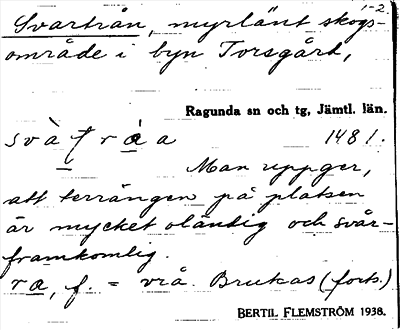 1-2.
Svartrån, myrlänt skogs-
område i byn Torsgård,
Ragunda sn och tg, Jämtl. län.
1481.
Man uppger,
att terrängen på platsen
är mycket oländig och svår-
framkomlig.
ræ, f. = vrå. Brukas (forts.)
BERTIL FLEMSTRÖM 1938.